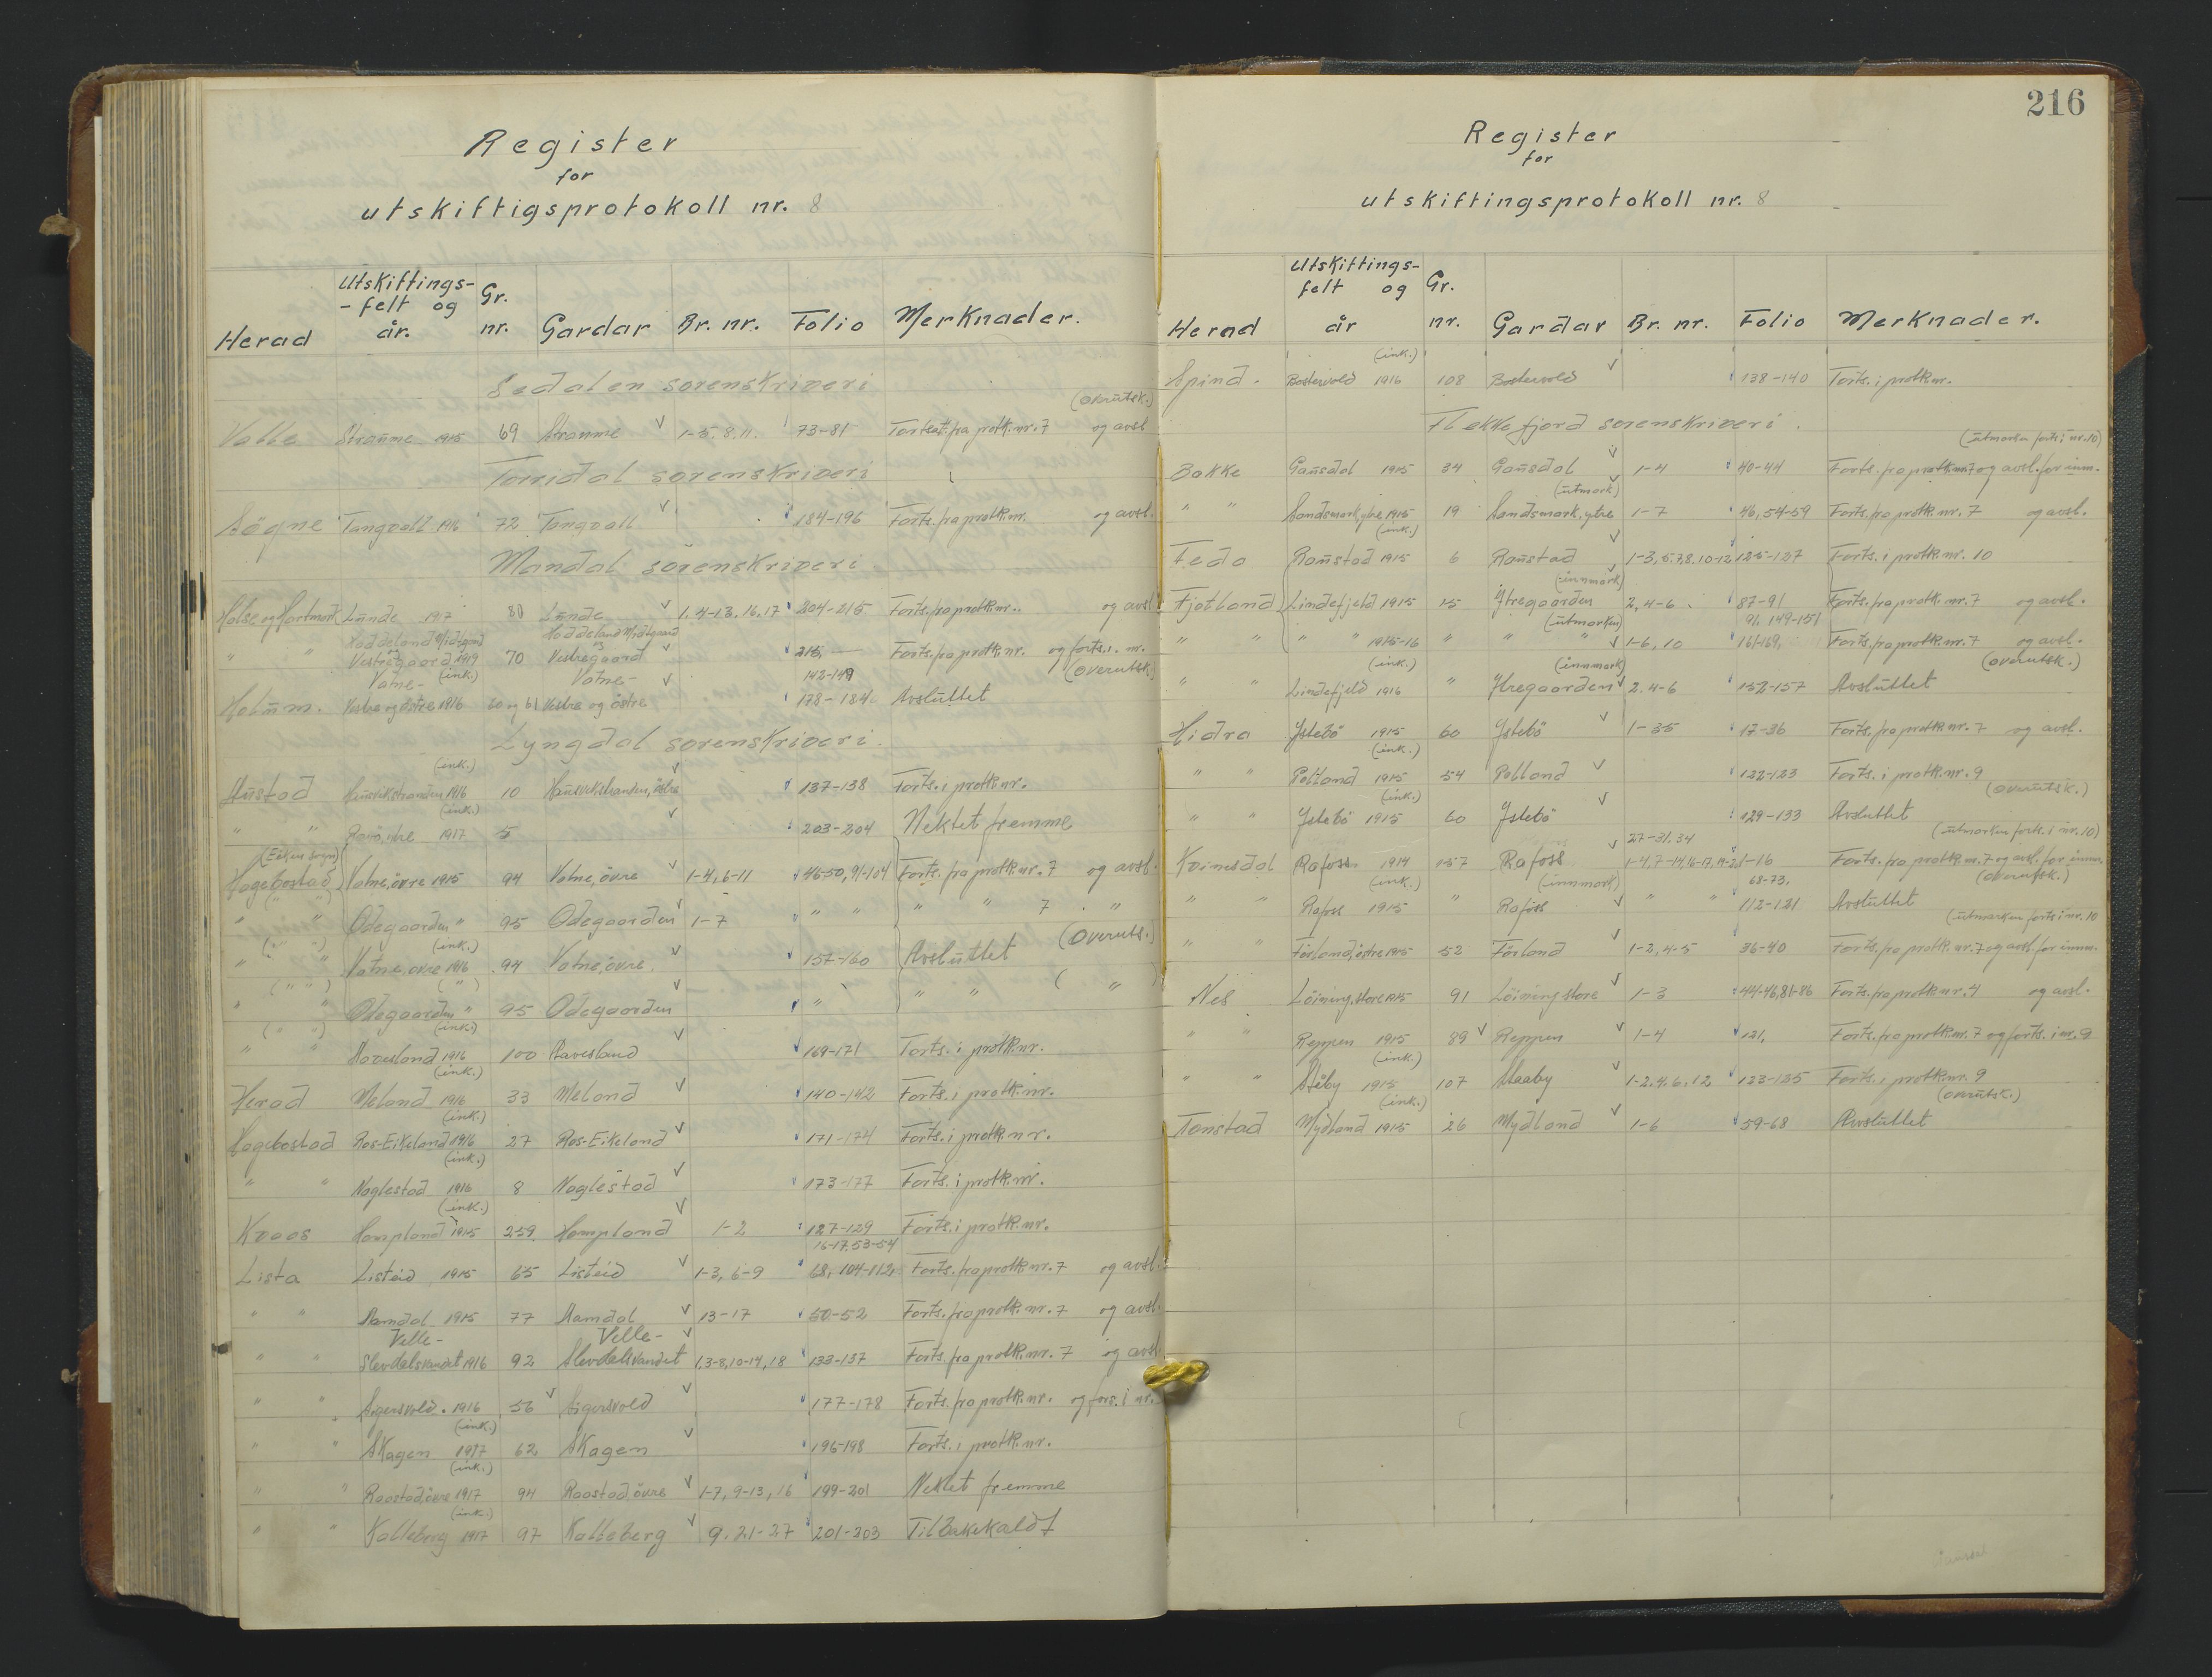 Register
for
utskiftigsprotokoll nr. 8
Herad Utskiftings- -felt og år. Gr. nr. Gardar Br. nr. Folio Merknader.
Setesdalen sorenskriveri
(overutsk.)
Valle Straume 1915 69 Straume 1-5. 8. 11. 73-81 Fortset. fra protk. nr. 7 og avsl
Torridal sorenskriveri
Søgne Tangvall 1916 72 Tangvall 184-196 Forts. fra protk. nr. og avsl.
Mandal sorenskriveri
Halse og Hartmark Lunde 1917 80 Lunde 1. 4-13, 16, 17 204-215 Forts. fra protk. nr. og avsl
" " Haddeland Midtgaard og Vestregaard 1919 70 Haddeland Midtgaard og Vestregaard 215, — Forts. fra protk. nr. og forts. i. nr.
(ink.) 142-149 (overutsk.)
Holum. Vatne- Vestre og østre 1916 60 og 61 Vatne- Vestre og østre 178-184 Avsluttet
Lyngdal sorenskriveri.
(ink.)
Austad 1916 10 137-138 Forts. i protk. nr.
(ink.)
" " 1917 5 203-204 Nektet fremme
(Eiken sogn)
Hægebostad Vatne, øvre 1915 94 Vatne, øvre 1-4, 6-11 46-50, 91-104 Forts. fra protk. nr. 7 og avsl.
(" ")
" " Ødegaarden " 95 Ødegaarden 1-7 " " " " 7 . "
(" ") (ink.) (Overuts.)
" " Vatne, øvre 1916 94 Vatne, øvre. 157-160 Avsluttet
(" ") (")
" " Ødegaarden " 95 Ødegaarden " " " ( " )
(" ") (ink.)
" " Haavesland 1916 100 169-171 Forts. i protk. nr.
(ink.)
Herad Meland 1916 33 Meland 140-142 Forts. i protk. nr.
(ink.)
Hægebostad Ros-Eikeland 1916 27 Ros-Eikeland 171-174 Forts. i protk. nr.
(ink.)
" " Naglestad 1916 8 Naglestad 173-177 Forts. i protk. nr.
(ink.)
Kvaas Hampland 1915 259 Hampland 1-2 127-129 Forts. i protk. nr.
16-17, 53-54
Lista Listeid 1915 65 Listeid 1-3, 6-9 68, 104-112, Forts. fra protk. nr. 7 og avsl.
" " 1915 77 13-17 50-52 Forts. fra protk. nr. 7 og avsl.
Velle- Velle-
" " Slevdalsvandet 1916 92 Slevdalsvandet 1,3-8,10-14,18 133-137 Forts. fra protk. nr. 7 og avsl.
" " Sigersvold. 1916 56 Sigersvold 177-178 Forts. fra protk. nr. og fors. i nr.
(ink.)
" " Skagen 1917 62 Skagen 196-198 Forts. i protk. nr.
(ink.)
" " Raastad, øvre 1917 94 Raastad, øvre 1-7, 9-13, 16 199-201 Nektet fremme
(ink.)
" " Kalleberg 1917 97 Kalleberg 9. 21-27 201-203 Tilbakekaldt
216
Register
for
utskiftingsprotokoll nr. 8
Herad Utskiftings- felt og år Gr. nr. Gardar Br. nr. Folio Merknader.
(ink.)
Spind. Bostervold 1916 108 Bostervold 138-140 Forts. i protk. nr.
Flekkefjord sorenskriveri.
(utmarka forts. i nr. 10)
Bakke Gausdal 1915 34 Gausdal 1-4 40-44 Forts. fra protk. nr. 7 og avsl. for inm.
(utmark)
" " Sandsmark, ytre 1915 19 Sandsmark, ytre 1-7 46, 54-59 Forts. fra protk. nr. 7 og avsl.
(ink.)
Feda Raustad 1915 6 Raustad 1-3, 5, 7, 8. 10-12 125-127 Forts. i protk. nr. 10
(innmark)
Fjotland Lindefjeld 1915 15 Ytregaarden 2, 4-6 . 87-91 Forts. fra protk. nr. 7 og avsl.
(utmarken) 91, 149-151
" " " " 1915-16 " " " 1-6, 10 161-169, Forts. fra protk. nr. 7 og avsl.
(ink.) (innmark) (overutsk.)
" " Lindefjeld 1916 " Ytregaarden 2. 4-6 152-157 Avsluttet
Hidra Ystebø 1915 60 Ystebø 1-35 17-36 Forts. fra protk. nr. 7 og avsl.
(ink.)
" " Pelland 1915 54 Pelland 122-123 Forts. i protk. nr. 9
(ink.) (overutsk.)
" " Ystebø 1915 60 Ystebø 129-133 Avsluttet
27-31, 34 (utmarken forts. i nr. 10)
Kvinesdal Rafoss 1914 157 Rafoss 1-4, 7-14, 16-17, 19-25 1-16 Forts. fra protk. nr. 7 og avsl. for innm.
(ink.) (innmark) 68-73, (overutsk.)
" " Rafoss 1915 " Rafoss " " 112-121 Avsluttet
(utmarken forts i nr. 10
" " Førland, østre 1915 52 Førland 1-2, 4-5 36-40 Forts. fra protk. nr. 7 og avsl. for innm.
Nes Løining, store 1915 91 Løining, store 1-3 44-46, 81-86 Forts. fra protk. nr. 4 og avsl.
" " Reppen 1915 89 Reppen 1-4 121, Forts. fra protk. nr. 7 og forts. i nr. 9
(ink.)
" " Ståby 1915 107 Staaby 1-2. 4. 6. 12 123-125 Forts. i protk. nr. 9
(ink.) (overutsk.)
Tonstad Mydland 1915 26 Mydland 1-6 59-68 Avsluttet